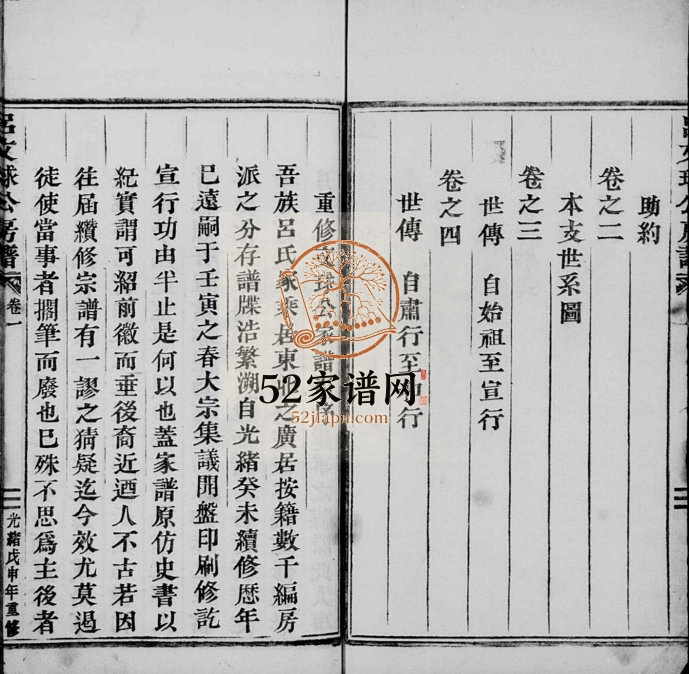 助約
卷之二
本支世系圖
卷之三
世傳 自始祖至宣行
卷之四
世傳 自肅行至 行
重修文球公房譜序
吾族呂氏家乘居東 之廣居按籍數千編房
派之分存譜牒浩繁溯自光緒癸未續修歷年
已遠嗣于壬寅之春大宗集議開盤印刷修訖
宣行功由半止是何以也蓋家譜原仿史書以
紀實謂可紹前徽而垂後裔近迺人不古若因
往屆纘修宗譜有一謬之猜疑迄今效尤莫遏
徒使當事者擱筆而廢也已殊不思爲主後者
呂文球公房譜
卷一
光緒戊申年重修
52家谱网
52jiapu.com